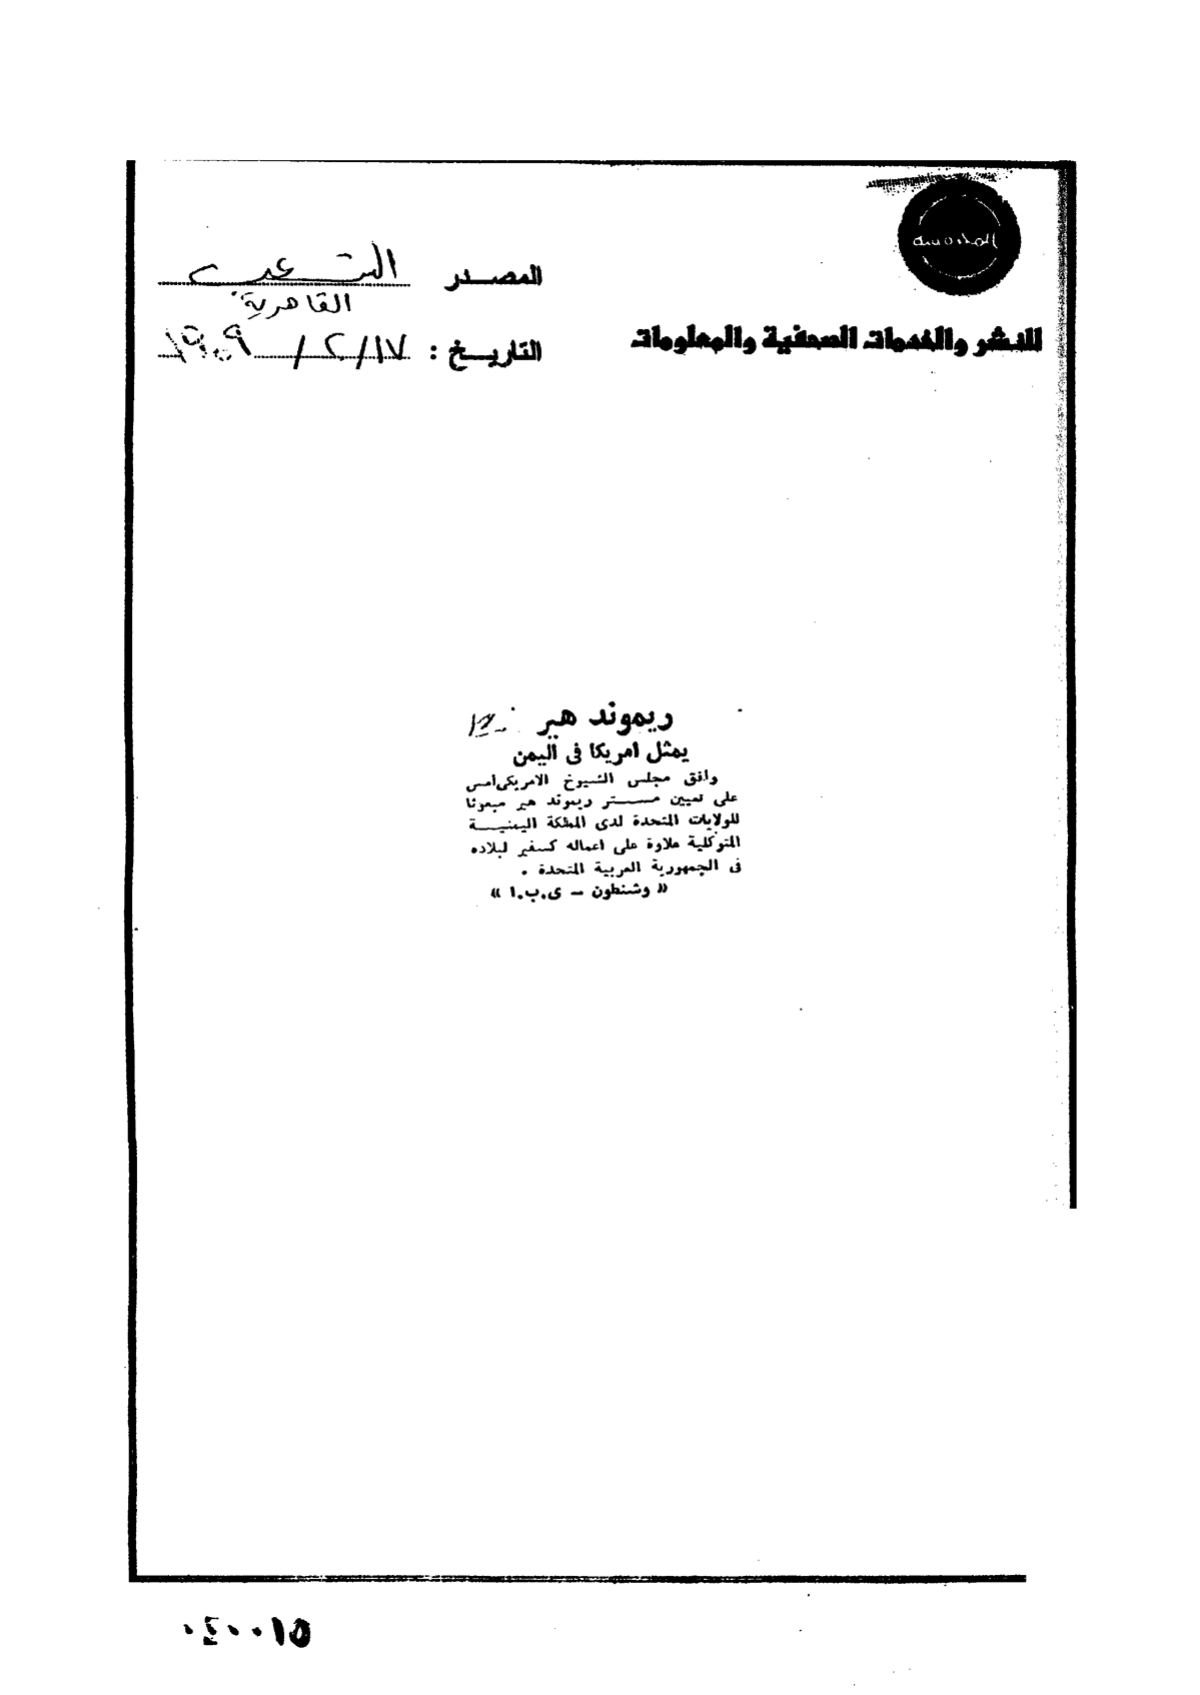 المصدر الشعب
القاهرية
للنشر والخدمات الصحفية والمعلومات
التاريخ : ١٧/ ٢/ ١٩٥٩
ريموند هير
يمثل امريكا فى اليمن
وافق مجلس الشيوخ الامريكى امس
على تعيين مستر ريموند هير مبعوثا
للولايات المتحدة لدى المملكة اليمنية
المتوكلية علاوة على اعماله كسفير لبلاده
فى الجمهورية العربية المتحدة .
« وشنطون – ى.ب.ا »
٠٤٠٠١٥